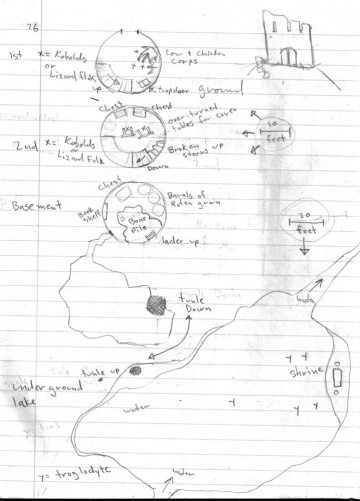 26
1st x = Kobolds
or
Lizard Folk
Cow + Chicken
Corps
up
Trapdoor
ground
Chest
Chest
over turned
tables for cover
10
feet
2nd x = Kobolds
or
Lizard Folk
Broken
stairs up
Down
Chest
Basement
Book
shelf
Bone
Pile
Barals of
Roten grain
lader up
20
feet
tunle
Down
tunle up
under ground
lake
water
shrine
water
y = troglodyte